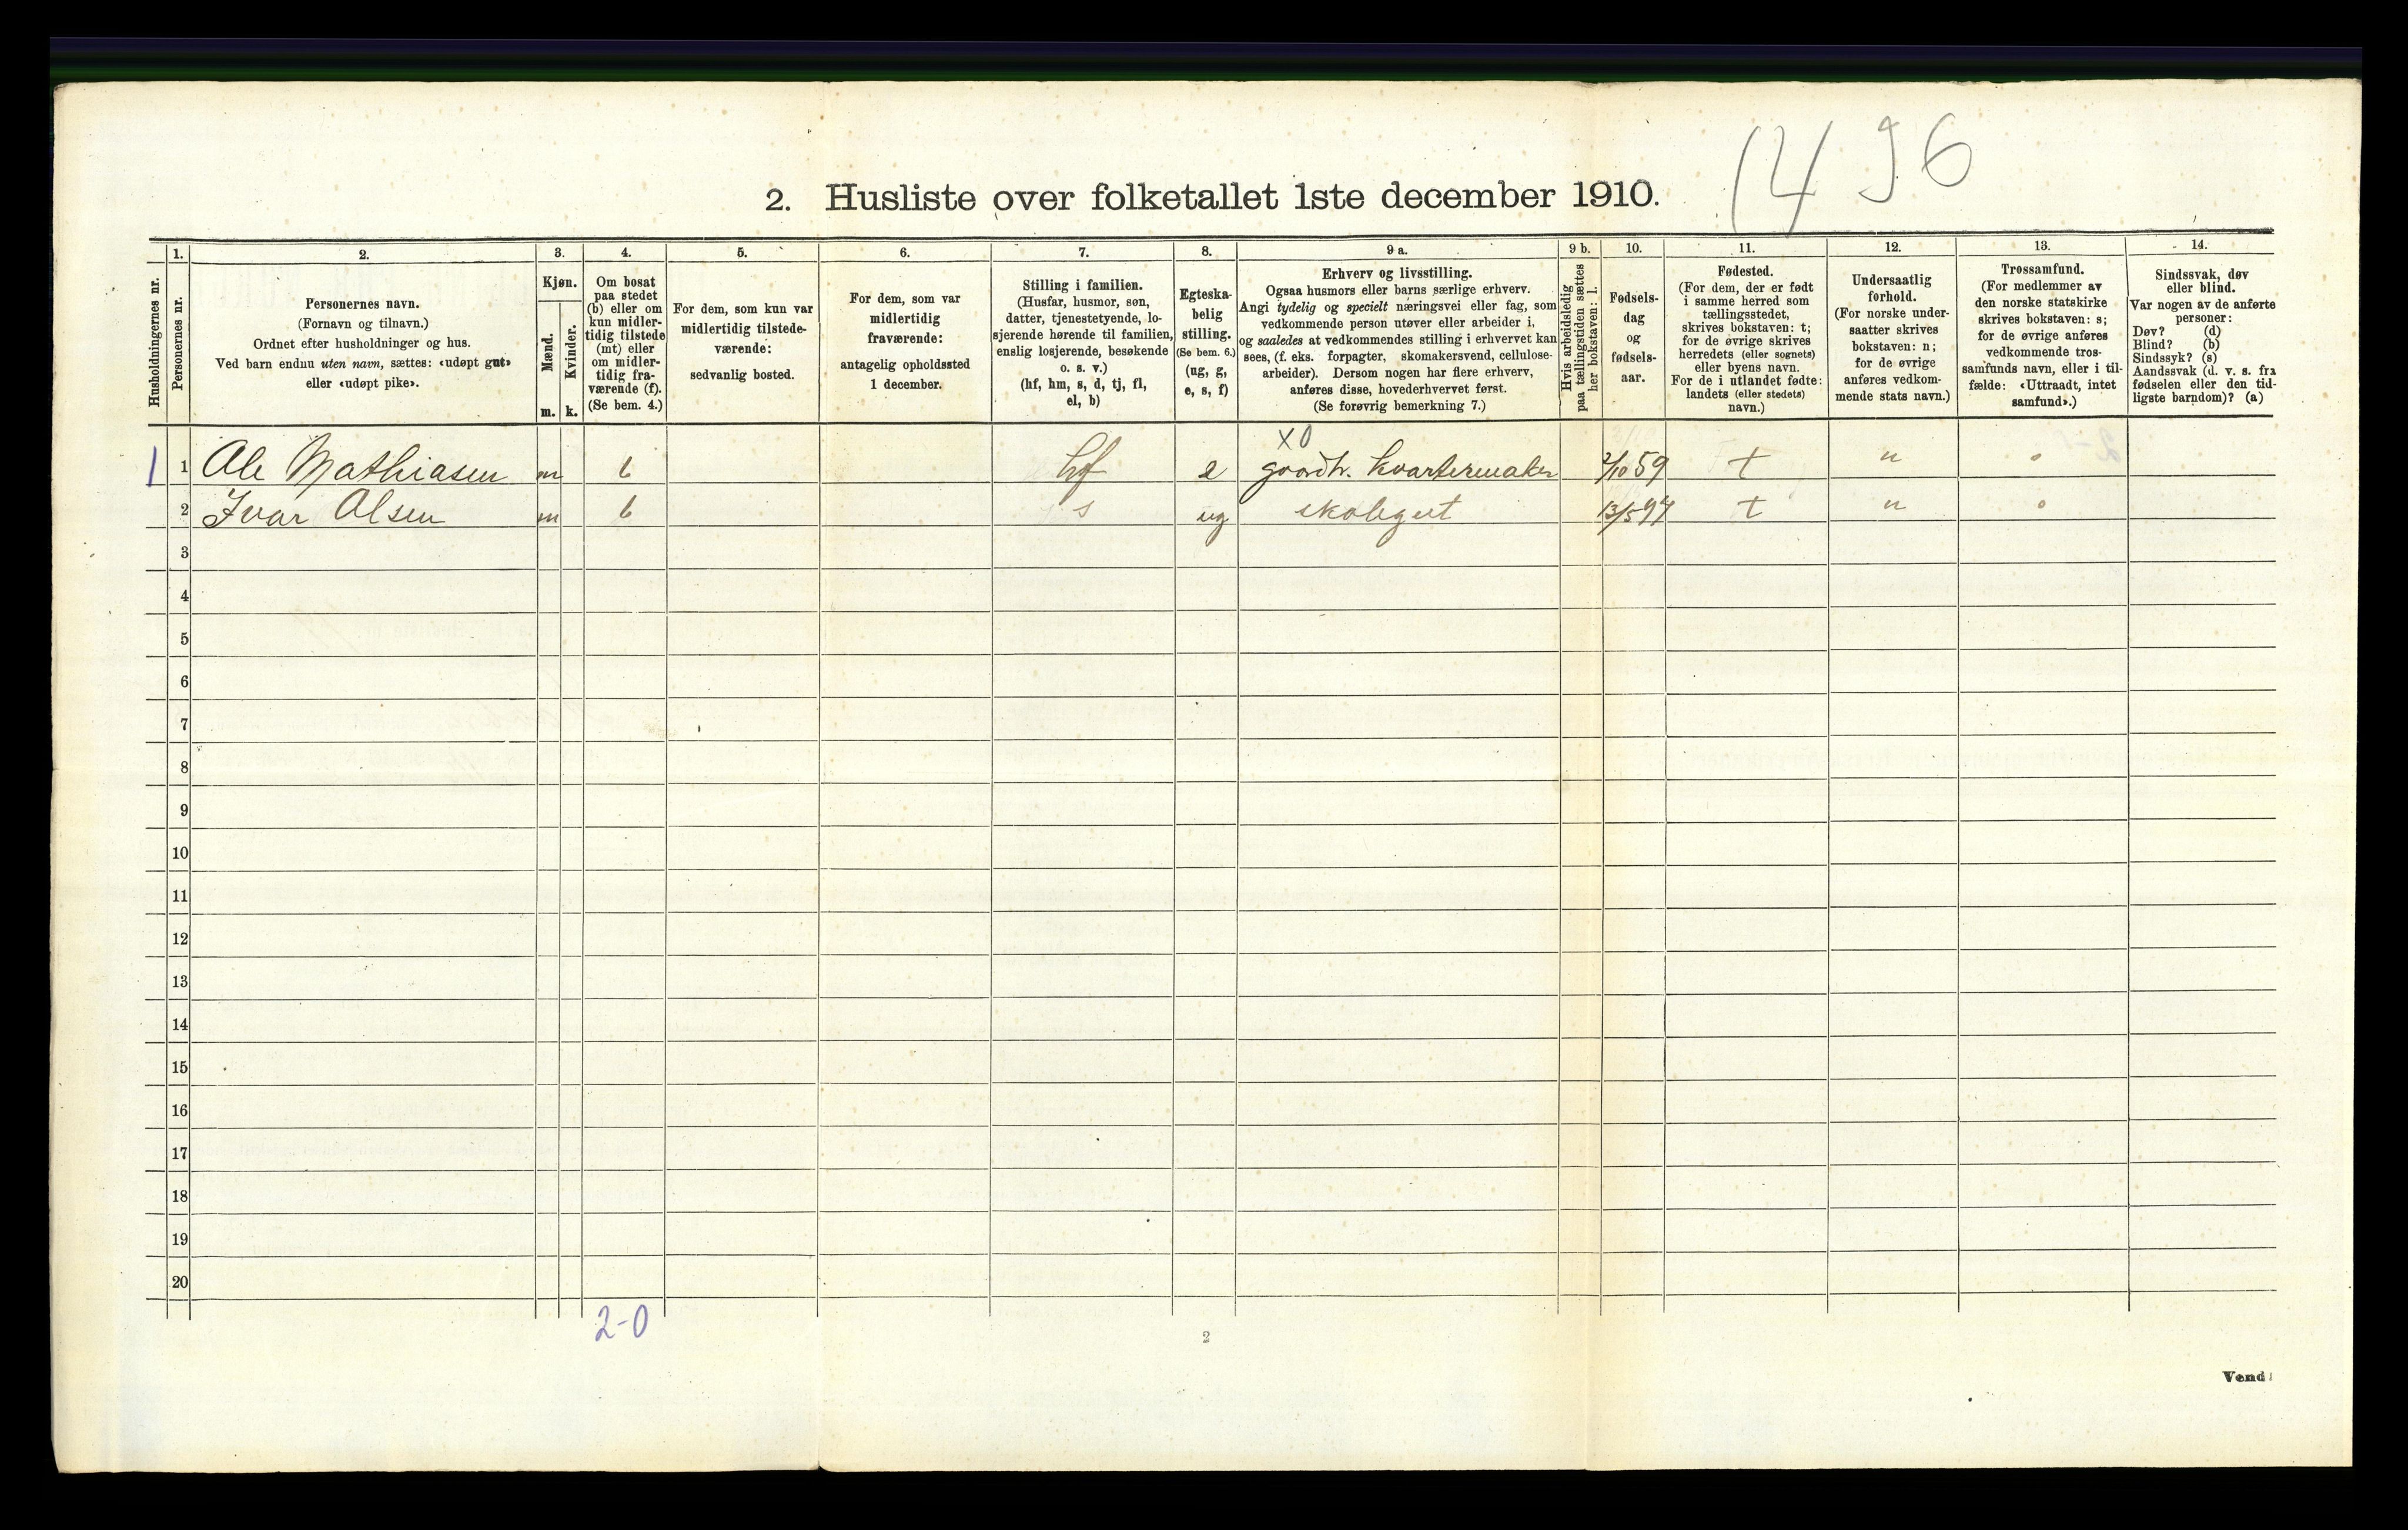 1496
2. Husliste over folketallet 1ste december 1910.
Husholdningernes nr.
1.
Personernes nr.
2.
Personernes navn.
(Fornavn og tilnavn.)
Ordnet efter husholdninger og hus.
Ved barn endnu uten navn, sættes: «udøpt gut»
eller «udøpt pike».
3.
Kjøn.
Mænd.
Kvinder.
m. k.
4.
Om bosat
paa stedet
(b) eller om
kun midler-
tidig tilstede
(mt) eller
om midler-
tidig fra-
værende (f).
(Se bem. 4.)
5.
For dem, som kun var
midlertidig tilstede-
værende:
sedvanlig bosted.
6.
For dem, som var
midlertidig
fraværende:
antagelig opholdssted
1 december.
7.
Stilling i familien.
(Husfar, husmor, søn,
datter, tjenestetyende, lo-
sjerende hørende til familien,
enslig losjerende, besøkende
o. s. v.)
(hf, hm, s, d, tj, fl,
el, b)
8.
Egteska-
belig
stilling.
(Se bem. 6.)
(ug, g,
e, s, f)
9 a.
Erhverv og livsstilling.
Ogsaa husmors eller barns særlige erhverv.
Angi tydelig og specielt næringsvei eller fag, som
vedkommende person utøver eller arbeider i,
og saaledes at vedkommendes stilling i erhvervet kan
sees, (f. eks. forpagter, skomakersvend, cellulose-
arbeider). Dersom nogen har flere erhverv,
anføres disse, hovederhvervet først.
(Se forøvrig bemerkning 7.)
9 b.
Hvis arbeidsledig
paa tællingstiden sættes
her bokstaven: l.
10.
Fødsels-
dag
og
fødsels-
aar.
11.
Fødested.
(For dem, der er født
i samme herred som
tællingsstedet,
skrives bokstaven: t;
for de øvrige skrives
herredets (eller sognets)
eller byens navn.
For de i utlandet fødte:
landets (eller stedets)
navn.)
12.
Undersaatlig
forhold.
(For norske under-
saatter skrives
bokstaven: n;
for de øvrige
anføres vedkom-
mende stats navn.)
13.
Trossamfund.
(For medlemmer av
den norske statskirke
skrives bokstaven: s;
for de øvrige anføres
vedkommende tros-
samfunds navn, eller i til-
fælde: «Uttraadt, intet
samfund».)
14.
Sindssvak, døv
eller blind.
Var nogen av de anførte
personer:
Døv? (d)
Blind? (b)
Sindssyk? (s)
Aandssvak (d. v. s. fra
fødselen eller den tid-
ligste barndom)? (a)
X0
1 1 Ole Mathiasen m b hf e gaardb. kvartermaker 2/10 59 t n
2 Ivar Olsen m b s ug skolegut 13/5 97 t n
3
4
5
6
7
8
9
10
11
12
13
14
15
16
17
18
19
20
2-0
2
Vend